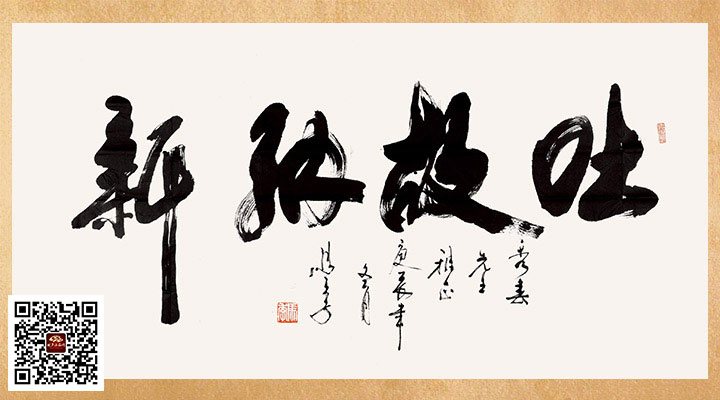 吐故纳新
先生
雅正
庚辰年
冬月